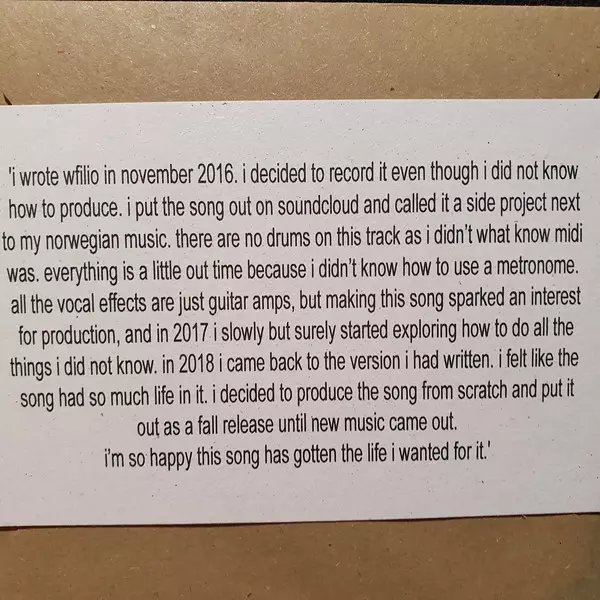 'i wrote wfilio in november 2016. i decided to record it even though i did not know
how to produce. i put the song out on soundcloud and called it a side project next
to my norwegian music. there are no drums on this track as i didn't what know midi
was. everything is a little out time because i didn't know how to use a metronome.
all the vocal effects are just guitar amps, but making this song sparked an interest
for production, and in 2017 i slowly but surely started exploring how to do all the
things i did not know. in 2018 i came back to the version i had written. i felt like the
song had so much life in it. i decided to produce the song from scratch and put it
out as a fall release until new music came out.
i'm so happy this song has gotten the life i wanted for it.'